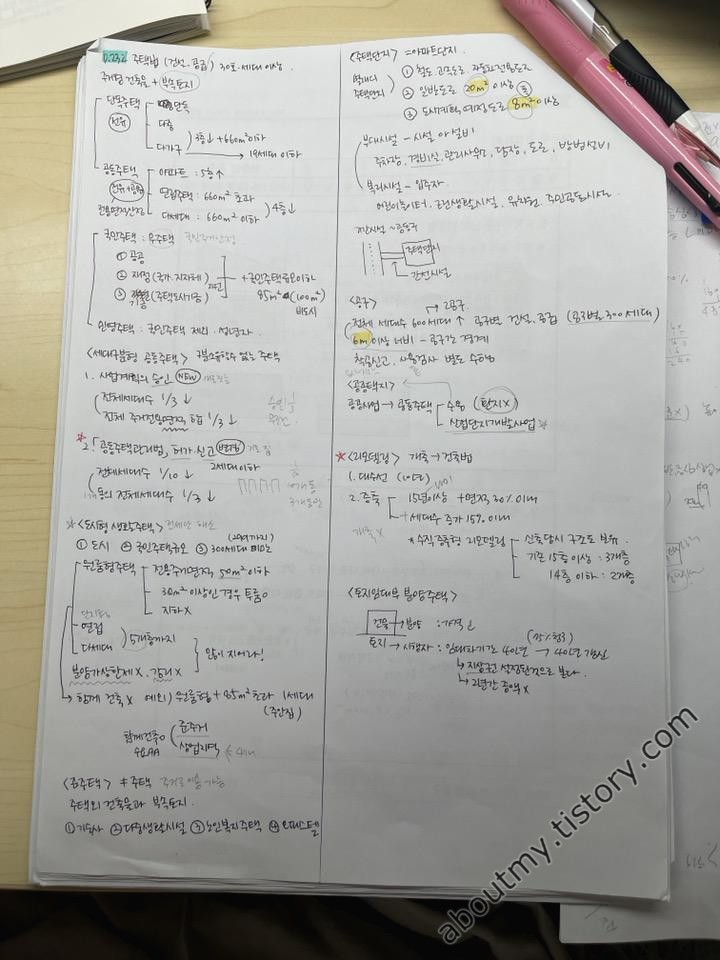 P.232 주택법 (건설.공급) 30호.세대 이상.
주거용 건축물 + 부속토지
단독주택 단독
소유 다중
다가구 3층↓ + 660m² 이하
→ 19세대 이하
공동주택 아파트 : 5층↑
소유+공용 연립주택 : 660m² 초과
전용면적산정 다세대 : 660m² 이하 4층↓
국민주택 :
① 공공
② 재정 (국가.지자체) + 국민주택규모이하
③ 기금 (주택도시기금) 85m² (100m²)
비도시
민영주택 : 국민주택 제외.
<세대구분형 공동주택> 구분소유할수 없는 주택
1. 사업계획의 승인 NEW
전체세대수 1/3 ↓
전체 주거전용면적 합 1/3 ↓
☆ 2. 「공동주택관리법」 허가.신고
2세대 이하
전체세대수 1/10 ↓
동의 전체세대수 1/3 ↓
☆ <도시형 생활주택>
(299까지)
① 도시 ② 국민주택규모 ③ 300세대 미만
원룸형주택 전용주거면적 50m² 이하
30m² 이상인 경우 투룸○
지하 X
단지형
연립
다세대 ) 5개층까지
많이 지어라!
분양가상한제 X.
→ 함께 건축 X 예외) 원룸형 + 85m² 초과 1세대
(주인집)
함께건축○ 준주거
상업지역
<준주택> ≠ 주택 주거로 이용 가능
주택외 건축물과 부속토지.
① 기숙사 ② 다중생활시설 ③ 노인복지주택 ④ 오피스텔
<주택단지> = 아파트단지
별개의 ① 철도.고속도로.자동차전용도로
주택단지 ② 일반도로 20m² 이상
③ 도시계획예정도로 8m² 이상
부대시설 - 시설 or 설비
주차장, 경비실, 관리사무소, 담장, 도로, 방범설비
복리시설 - 입주자
어린이놀이터, 근린생활시설, 유치원, 주민공동시설.
간선시설 ~
주택단지
간선시설
<공구> → 2공구
전체 세대수 600세대↑ 공구별 건설.공급 (공구별 300세대)
6m 이상 너비 - 공구간 경계
착공신고. 사용검사 별도 수행
<공공택지>
공공사업 → 공동주택 수용 (환지X)
산업단지개발사업
☆ <리모델링> 개축 → 건축법
1. 대수선 (10년)
2. 증축 15년이상 + 면적 30% 이내
개축 X + 세대수 증가 15% 이내
* 수직증축형 리모델링 신축당시 구조도 보유.
기존 15층 이상 : 3개층
14층 이하 : 2개층
<토지임대부 분양주택>
건물 → 분양 : 가격↓
토지 → 시행자 : 임대차기간 40년 → 40년 갱신
→ 지상권이 설정된것으로 본다.
→ 2년간 증액 X
aboutmy.tistory.com